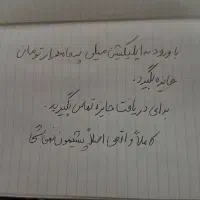 با ورود به اپلیکیشن میلی پنجاه هزار تومان
جایزه بگیرد.
برای دریافت جایزه تماس بگیرید.
کاملاً واقعی اصلاً پشیمون نمی